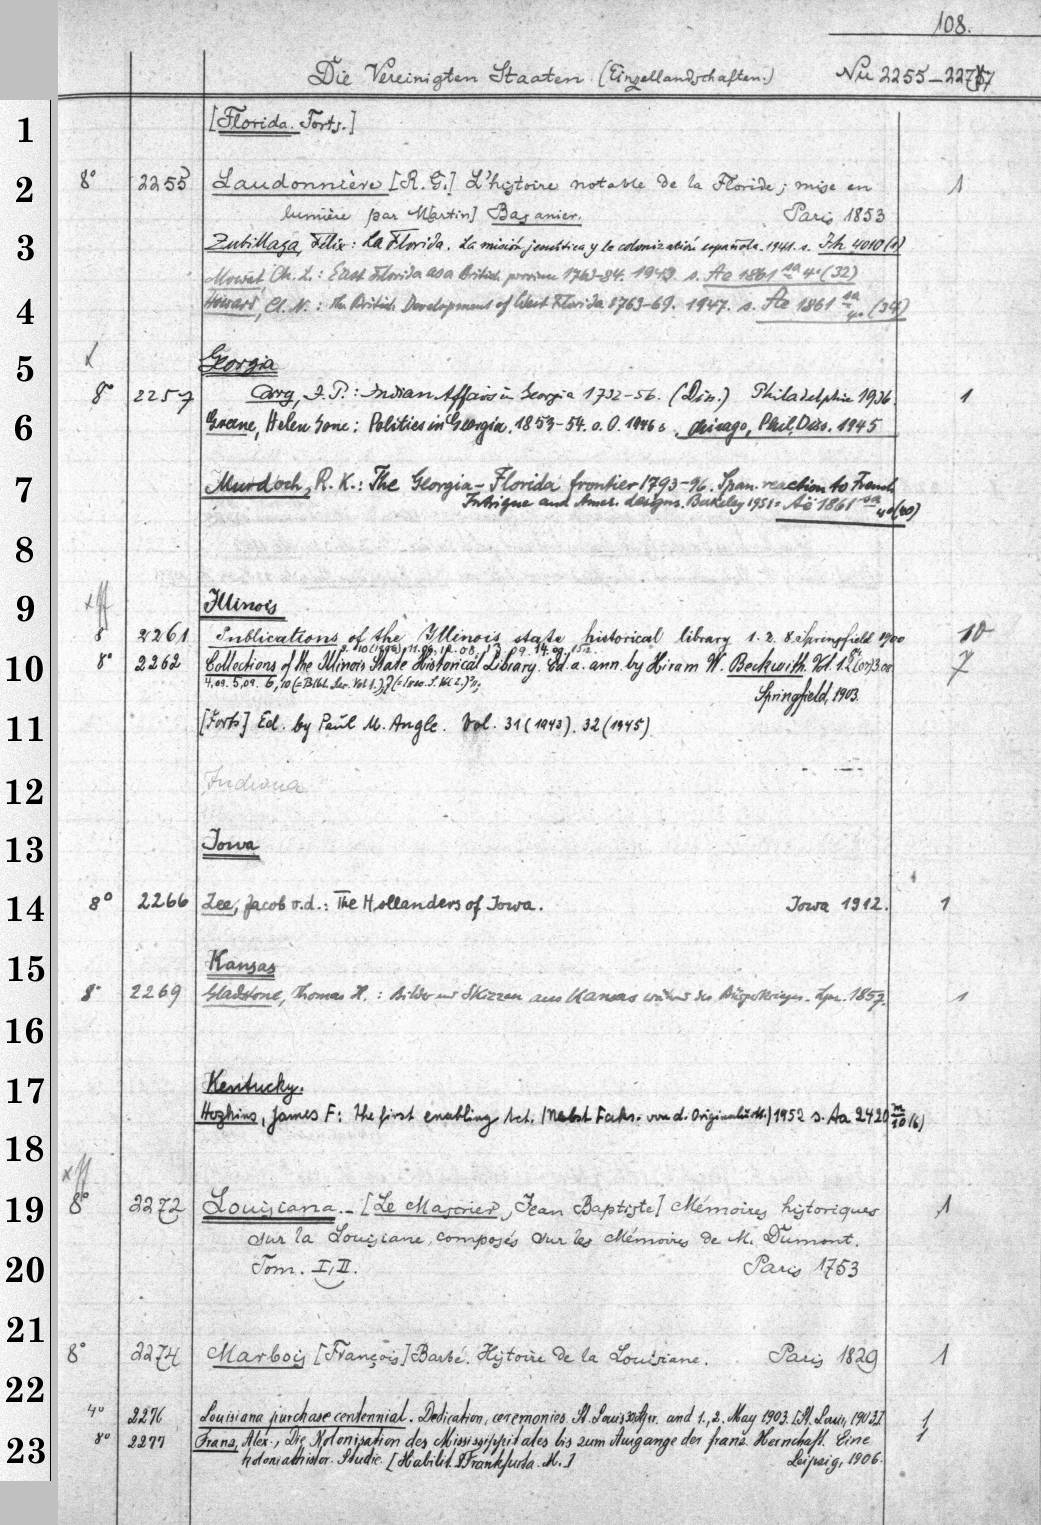 108.
Die Vereinigten Staaten (Einzellandschaften.) Nu 2255-2277
1 [Florida. Forts.]
2 8° 2255 Laudonnière [R. G.] L'histoire notable de la Floride; mise en 1
lumière par M[artin] Basanier. Paris 1853
3 Zubillaga, Félix: La Florida. La misión jesuítica y la colonización española. 1941. s. Jh 4010 (1)
Mowat Ch. L.: East Florida as a British province 1763-84. 1943. s. Ae 1861 sa 4° (32)
4 Howard, Cl. N.: The British Development of West Florida 1763-69. 1947. s. Ae 1861 sa 4° (34)
5 Georgia
8° 2257 Corry, J. P.: Indian Affairs in Georgia 1732-56. (Diss.) Philadelphia 1936. 1
6 Greene, Helen Ione: Politics in Georgia, 1853-54. o. O. 1946 s. Chicago, Phil. Diss. 1945
7 Murdoch, R. K.: The Georgia-Florida frontier 1793-96. Span. reaction to French
Intrigue and Amer. designs. Berkeley 1951 = Ae 1861 sa 4° (40)
8
9 Illinois
8° 2261 Publications of the Illinois state historical library 1. 2. 8. Springfield 1900 10
10 8° 2262 Collections of the Illinois State Historical Library. Ed. a. ann. by Hiram W. Beckwith. Vol 1. 7
Springfield, 1903.
11 [Forts] Ed. by Paul M. Angle. Vol. 31 (1943). 32 (1945)
12 Indiana
13 Iowa
14 8° 2266 Zee, Jacob v.d.: The Hollanders of Iowa. Iowa 1912. 1
15 Kansas
8° 2269 Gladstone, Thomas H.: Bilder und Skizzen aus Kansas während des Bürgerkrieges. Lpz. 1857. 1
16
17 Kentucky.
Hopkins, James F: The first enabling Act. (Nebst Faks. von d. Original) 1952 s. Aa 2420
18
19 8° 2272 Louisiana. - [Le Mascrier, Jean Baptiste] Mémoires historiques 1
sur la Louisiane, composés sur les Mémoires de M. Dumont.
20 Tom. I, II. Paris 1753
21
8° 2274 Marbois [François] Barbé. Histoire de la Louisiane. Paris 1829 1
22
4° 2276 Louisiana purchase centennial. Dedication, ceremonies. St. Louis 30 Apr. and 1., 2. May 1903. [St. Louis, 1903] 1
23 8° 2277 Franz, Alex., Die Kolonisation des Mississippitales bis zum Ausgange der franz. Herrschaft. Eine 1
kolonialhistor. Studie. [Habilit. Frankfurt a. M.] Leipzig, 1906.